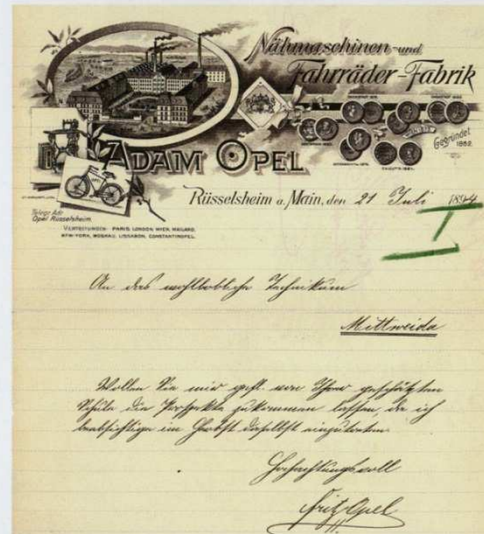 Nähmaschinen- und
Fahrräder-Fabrik
Gegründet
1862.
ADAM OPEL
Rüsselsheim a. Main, den 21 Juli 1894
Telegr. Adr.
Opel Rüsselsheim.
VERTRETUNGEN: PARIS, LONDON, WIEN, MAILAND,
NEW-YORK, MOSKAU, LISSABON, CONSTANTINOPEL.
An das wohllöbliche Technikum
Mittweida
Wollen Sie mir gefl. von Ihrer geschätzten
Schule die Prospekte zukommen lassen, da ich
beabsichtige im Herbst daselbst einzutreten.
Hochachtungsvoll
Fritz Opel